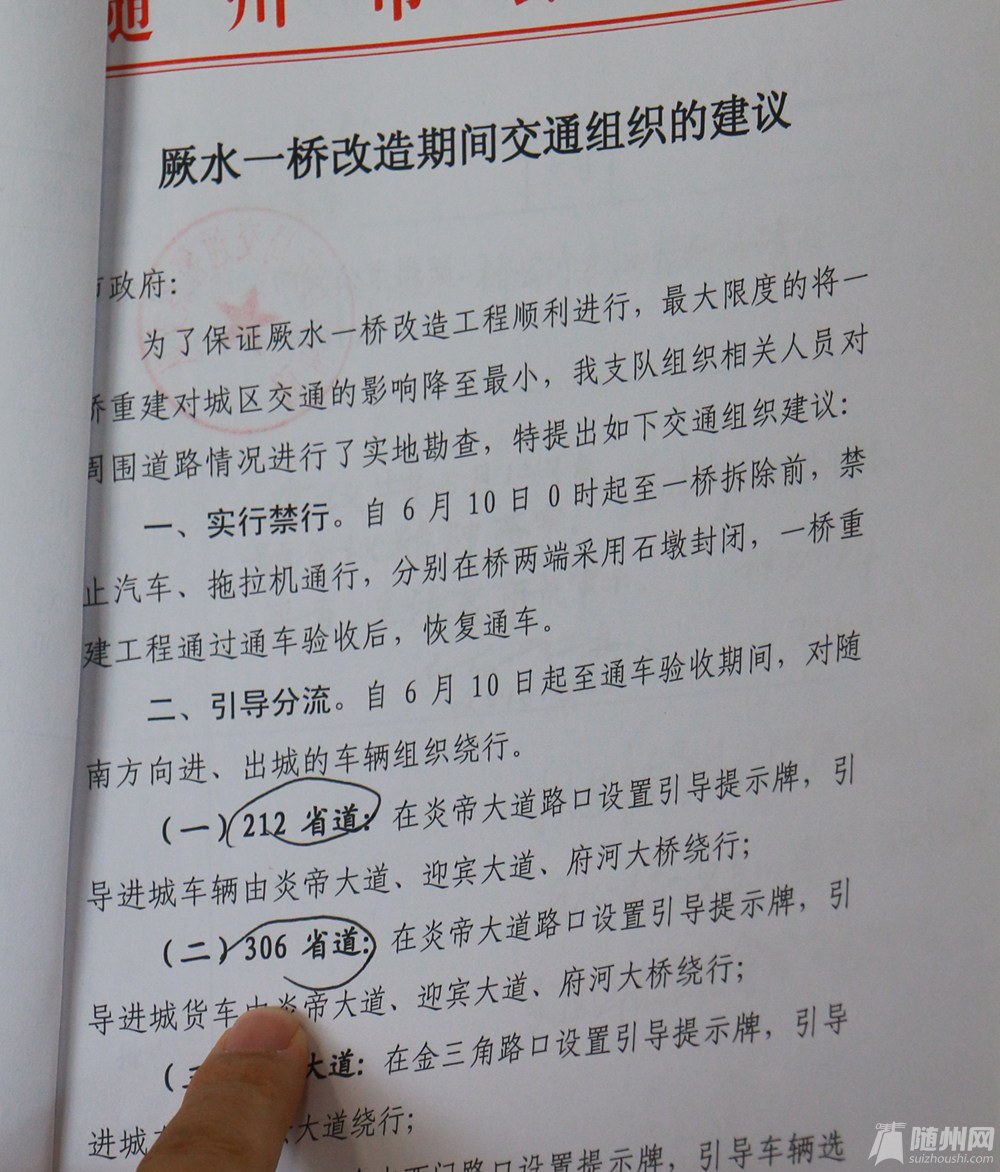 随 州 市
厥水一桥改造期间交通组织的建议
市政府：
为了保证厥水一桥改造工程顺利进行，最大限度的将一
桥重建对城区交通的影响降至最小，我支队组织相关人员对
周围道路情况进行了实地勘查，特提出如下交通组织建议：
一、实行禁行。自 6 月 10 日 0 时起至一桥拆除前，禁
止汽车、拖拉机通行，分别在桥两端采用石墩封闭，一桥重
建工程通过通车验收后，恢复通车。
二、引导分流。自 6 月 10 日起至通车验收期间，对随
南方向进、出城的车辆组织绕行。
（一）212 省道：在炎帝大道路口设置引导提示牌，引
导进城车辆由炎帝大道、迎宾大道、府河大桥绕行；
（二）306 省道：在炎帝大道路口设置引导提示牌，引
导进城货车由炎帝大道、迎宾大道、府河大桥绕行；
大道：在金三角路口设置引导提示牌，引导
进城 大道绕行；
路口设置提示牌，引导车辆选
随州网
suizhoushi.com